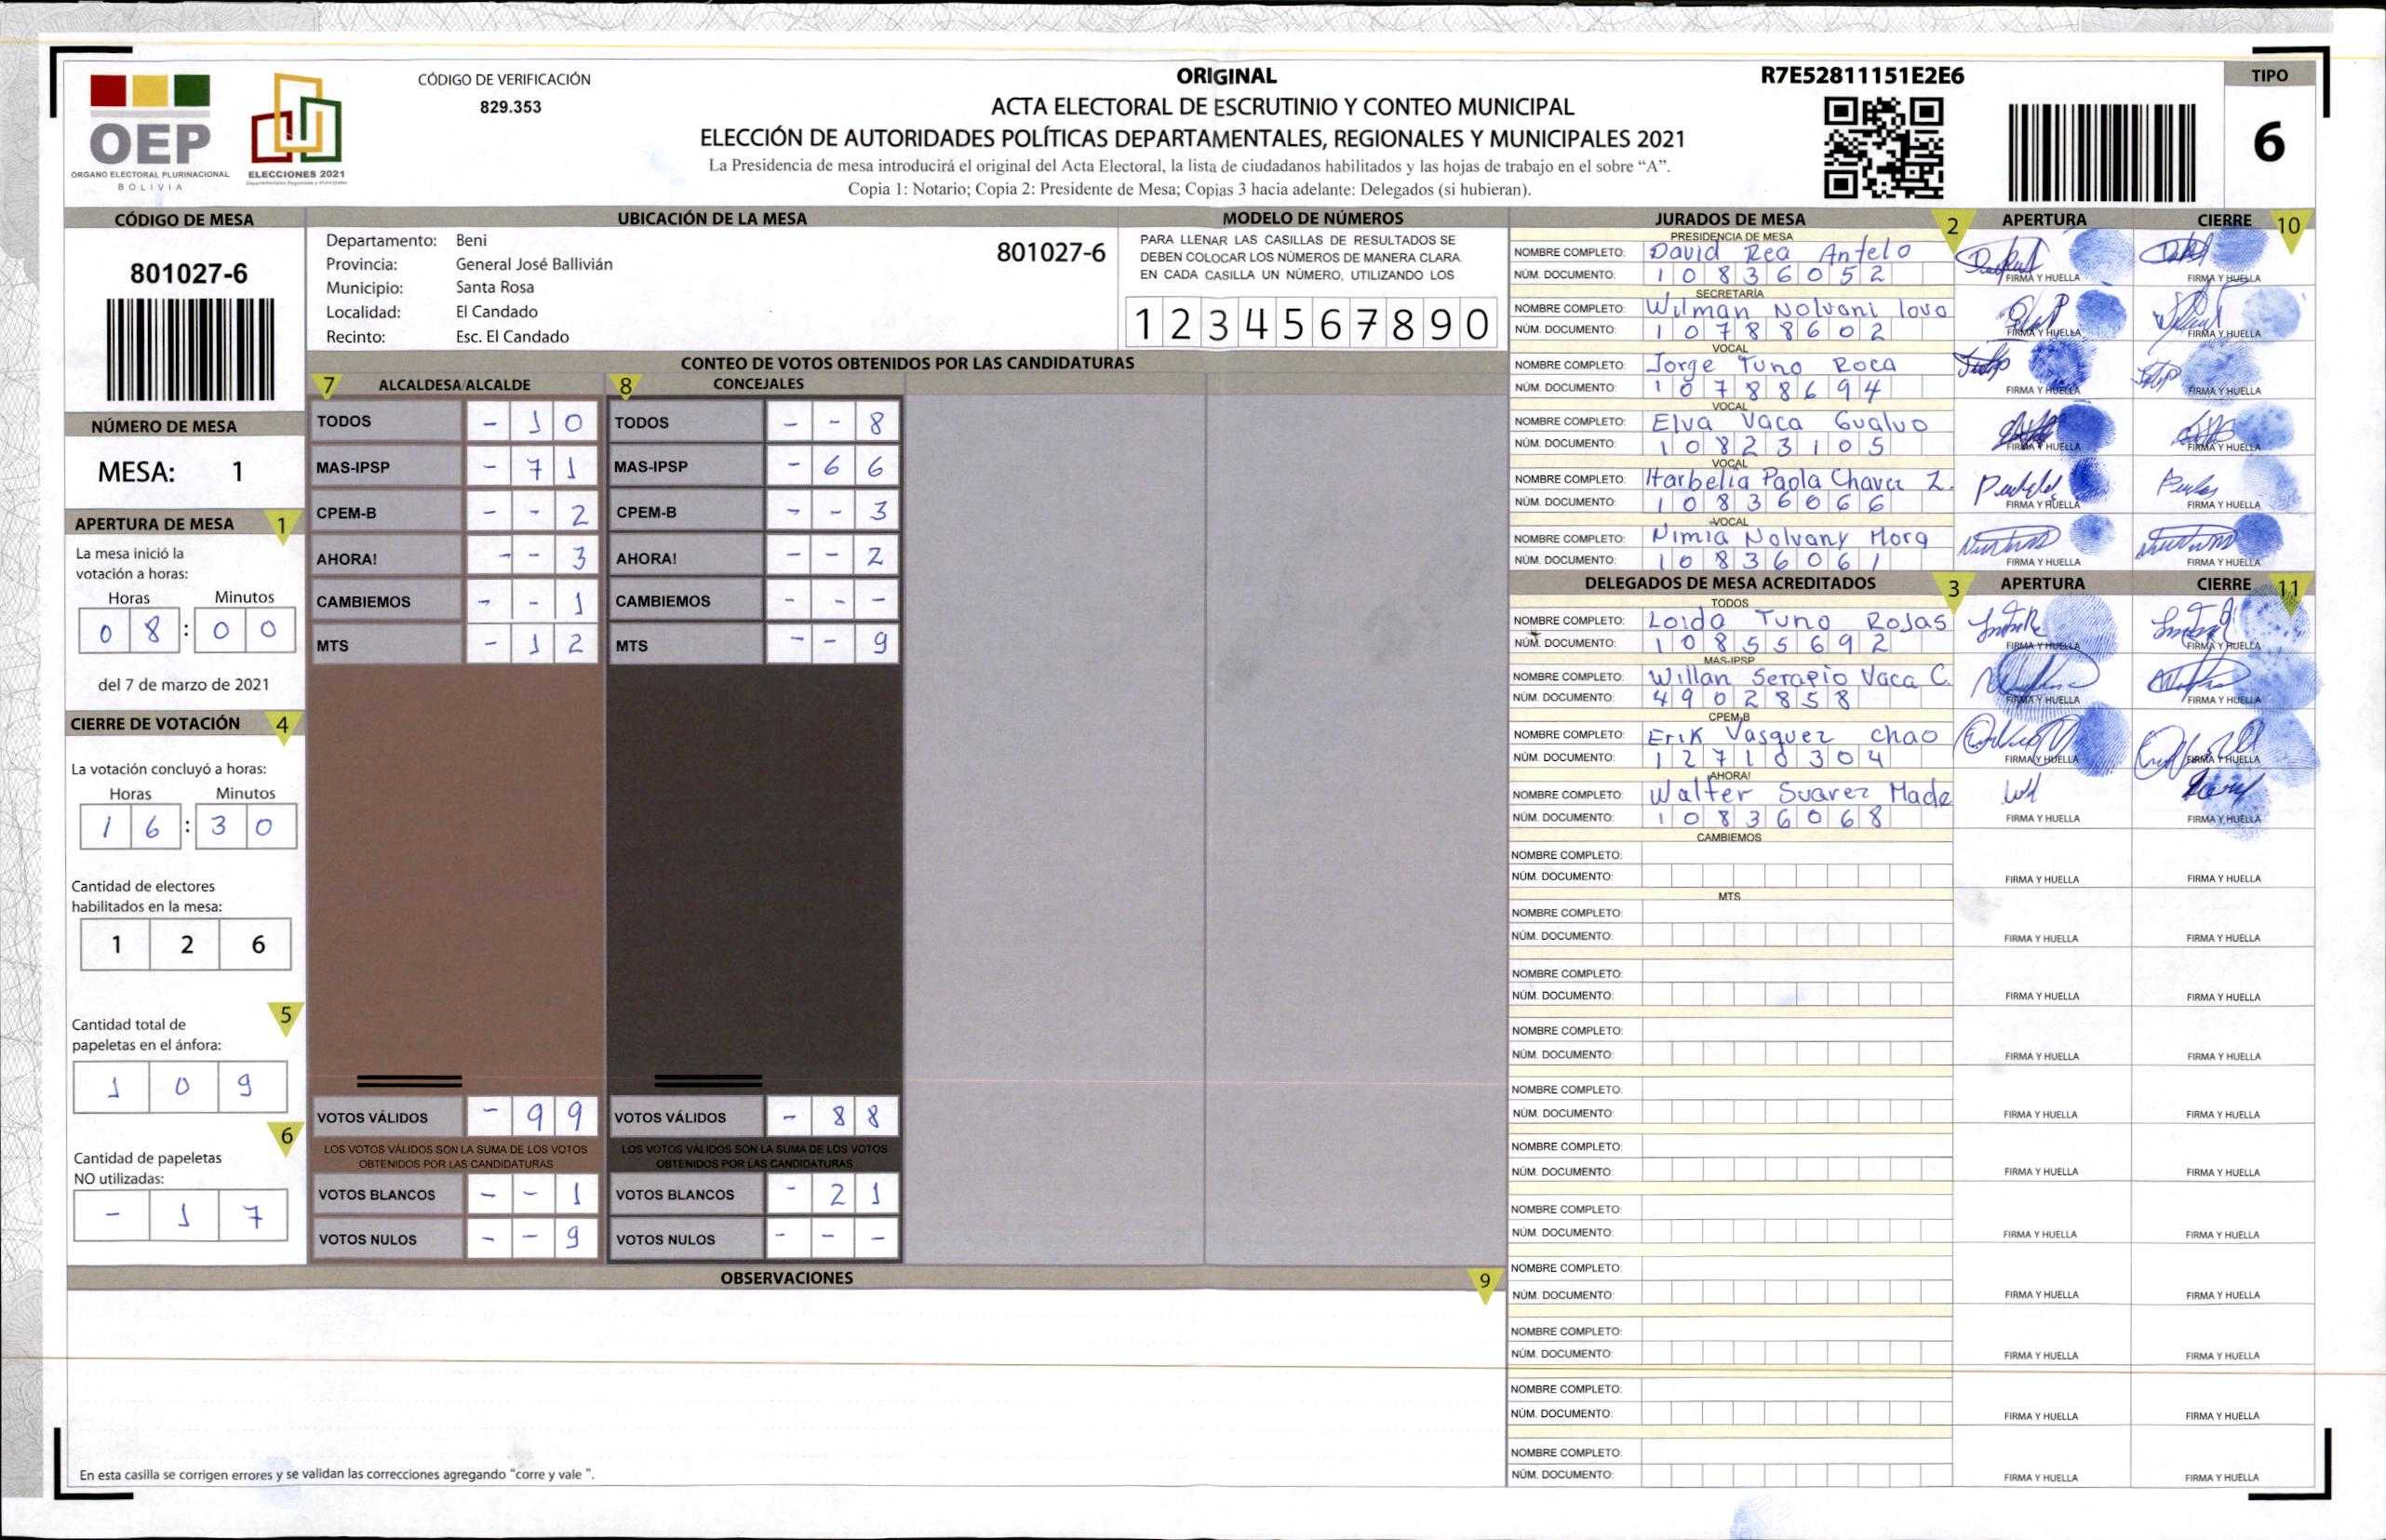 OEP
ORGANO ELECTORAL PLURINACIONAL
BOLIVIA
ELECCIONES 2021
CÓDIGO DE VERIFICACIÓN
829.353
ORIGINAL
ACTA ELECTORAL DE ESCRUTINIO Y CONTEO MUNICIPAL
ELECCIÓN DE AUTORIDADES POLÍTICAS DEPARTAMENTALES, REGIONALES Y MUNICIPALES 2021
La Presidencia de mesa introducirá el original del Acta Electoral, la lista de ciudadanos habilitados y las hojas de trabajo en el sobre “A”.
Copia 1: Notario; Copia 2: Presidente de Mesa; Copias 3 hacia adelante: Delegados (si hubieran).
R7E52811151E2E6
TIPO
6
CÓDIGO DE MESA
801027-6
NÚMERO DE MESA
MESA: 1
APERTURA DE MESA 1
La mesa inició la
votación a horas:
Horas Minutos
0 8 : 0 0
del 7 de marzo de 2021
CIERRE DE VOTACIÓN 4
La votación concluyó a horas:
Horas Minutos
1 6 : 3 0
Cantidad de electores
habilitados en la mesa:
1 2 6
5
Cantidad total de
papeletas en el ánfora:
1 0 9
6
Cantidad de papeletas
NO utilizadas:
- 1 7
UBICACIÓN DE LA MESA
Departamento: Beni
Provincia: General José Ballivián
Municipio: Santa Rosa
Localidad: El Candado
Recinto: Esc. El Candado
801027-6
MODELO DE NÚMEROS
PARA LLENAR LAS CASILLAS DE RESULTADOS SE
DEBEN COLOCAR LOS NÚMEROS DE MANERA CLARA
EN CADA CASILLA UN NÚMERO, UTILIZANDO LOS
1 2 3 4 5 6 7 8 9 0
CONTEO DE VOTOS OBTENIDOS POR LAS CANDIDATURAS
7 ALCALDESA/ALCALDE
TODOS - 1 0
MAS-IPSP - 7 1
CPEM-B - - 2
AHORA! - - 3
CAMBIEMOS - - 1
MTS - 1 2
VOTOS VÁLIDOS - 9 9
LOS VOTOS VÁLIDOS SON LA SUMA DE LOS VOTOS
OBTENIDOS POR LAS CANDIDATURAS
VOTOS BLANCOS - - 1
VOTOS NULOS - - 9
8 CONCEJALES
TODOS - - 8
MAS-IPSP - 6 6
CPEM-B - - 3
AHORA! - - 2
CAMBIEMOS - - -
MTS - - 9
VOTOS VÁLIDOS - 8 8
LOS VOTOS VÁLIDOS SON LA SUMA DE LOS VOTOS
OBTENIDOS POR LAS CANDIDATURAS
VOTOS BLANCOS - 2 1
VOTOS NULOS - - -
OBSERVACIONES 9
En esta casilla se corrigen errores y se validan las correcciones agregando "corre y vale ".
JURADOS DE MESA 2 APERTURA CIERRE 10
PRESIDENCIA DE MESA
NOMBRE COMPLETO: David Rea Antelo
NÚM. DOCUMENTO: 10836052 FIRMA Y HUELLA FIRMA Y HUELLA
SECRETARÍA
NOMBRE COMPLETO: Wilman Nolvani
NÚM. DOCUMENTO: 10788602 FIRMA Y HUELLA FIRMA Y HUELLA
VOCAL
NOMBRE COMPLETO: Jorge Tuno Roca
NÚM. DOCUMENTO: 10788694 FIRMA Y HUELLA FIRMA Y HUELLA
VOCAL
NOMBRE COMPLETO: Elva Vaca Gualuo
NÚM. DOCUMENTO: 10823105 FIRMA Y HUELLA FIRMA Y HUELLA
VOCAL
NOMBRE COMPLETO: Paola Chavez Z.
NÚM. DOCUMENTO: 10836066 FIRMA Y HUELLA FIRMA Y HUELLA
VOCAL
NOMBRE COMPLETO: Nimia Nolvany
NÚM. DOCUMENTO: 10836061 FIRMA Y HUELLA FIRMA Y HUELLA
DELEGADOS DE MESA ACREDITADOS 3 APERTURA CIERRE 11
TODOS
NOMBRE COMPLETO: Loida Tuno Rojas
NÚM. DOCUMENTO: 10855692 FIRMA Y HUELLA FIRMA Y HUELLA
MAS-IPSP
NOMBRE COMPLETO: Willan Serapio Vaca C.
NÚM. DOCUMENTO: 4902858 FIRMA Y HUELLA FIRMA Y HUELLA
CPEM-B
NOMBRE COMPLETO: Erik Vasquez chao
NÚM. DOCUMENTO: 12710304 FIRMA Y HUELLA FIRMA Y HUELLA
AHORA!
NOMBRE COMPLETO: Walter Suarez Made
NÚM. DOCUMENTO: 10836068 FIRMA Y HUELLA FIRMA Y HUELLA
CAMBIEMOS
NOMBRE COMPLETO:
NÚM. DOCUMENTO: FIRMA Y HUELLA FIRMA Y HUELLA
MTS
NOMBRE COMPLETO:
NÚM. DOCUMENTO: FIRMA Y HUELLA FIRMA Y HUELLA
NOMBRE COMPLETO:
NÚM. DOCUMENTO: FIRMA Y HUELLA FIRMA Y HUELLA
NOMBRE COMPLETO:
NÚM. DOCUMENTO: FIRMA Y HUELLA FIRMA Y HUELLA
NOMBRE COMPLETO:
NÚM. DOCUMENTO: FIRMA Y HUELLA FIRMA Y HUELLA
NOMBRE COMPLETO:
NÚM. DOCUMENTO: FIRMA Y HUELLA FIRMA Y HUELLA
NOMBRE COMPLETO:
NÚM. DOCUMENTO: FIRMA Y HUELLA FIRMA Y HUELLA
NOMBRE COMPLETO:
NÚM. DOCUMENTO: FIRMA Y HUELLA FIRMA Y HUELLA
NOMBRE COMPLETO:
NÚM. DOCUMENTO: FIRMA Y HUELLA FIRMA Y HUELLA
NOMBRE COMPLETO:
NÚM. DOCUMENTO: FIRMA Y HUELLA FIRMA Y HUELLA
NOMBRE COMPLETO:
NÚM. DOCUMENTO: FIRMA Y HUELLA FIRMA Y HUELLA